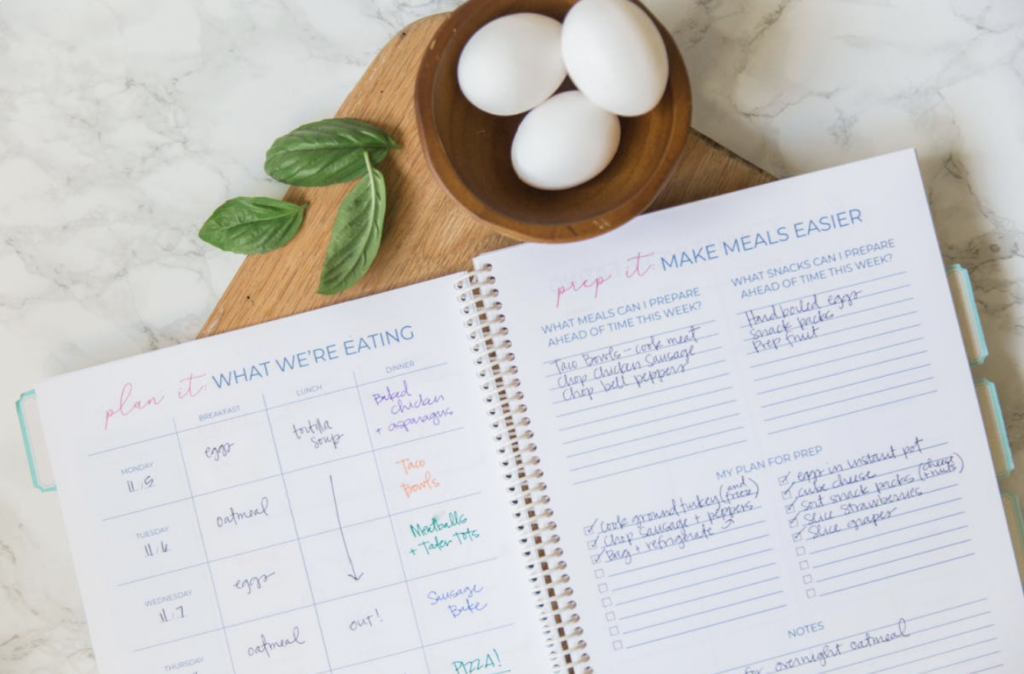 plan it: WHAT WE'RE EATING
BREAKFAST
LUNCH
DINNER
MONDAY
11.5
eggs
tortilla
soup
Baked
chicken
+ asparagus
TUESDAY
11.6
oatmeal
Taco
Bowls
WEDNESDAY
11.7
eggs
Meatballs
+ Tater Tots
THURSDAY
oatmeal
out!
Sausage
Bake
PIZZA!
prep it: MAKE MEALS EASIER
WHAT MEALS CAN I PREPARE
AHEAD OF TIME THIS WEEK?
Taco Bowls - cook meat
Chop Chicken Sausage
Chop bell peppers
WHAT SNACKS CAN I PREPARE
AHEAD OF TIME THIS WEEK?
Hard boiled eggs
Snack packs
Prep fruit
MY PLAN FOR PREP
cook ground turkey (and freeze)
Chop Sausage + peppers
Bag + refrigerate
eggs in instant pot
cube cheese
sort snack packs (cheese + fruits)
Slice strawberries
Slice grapes
NOTES
for overnight oatmeal